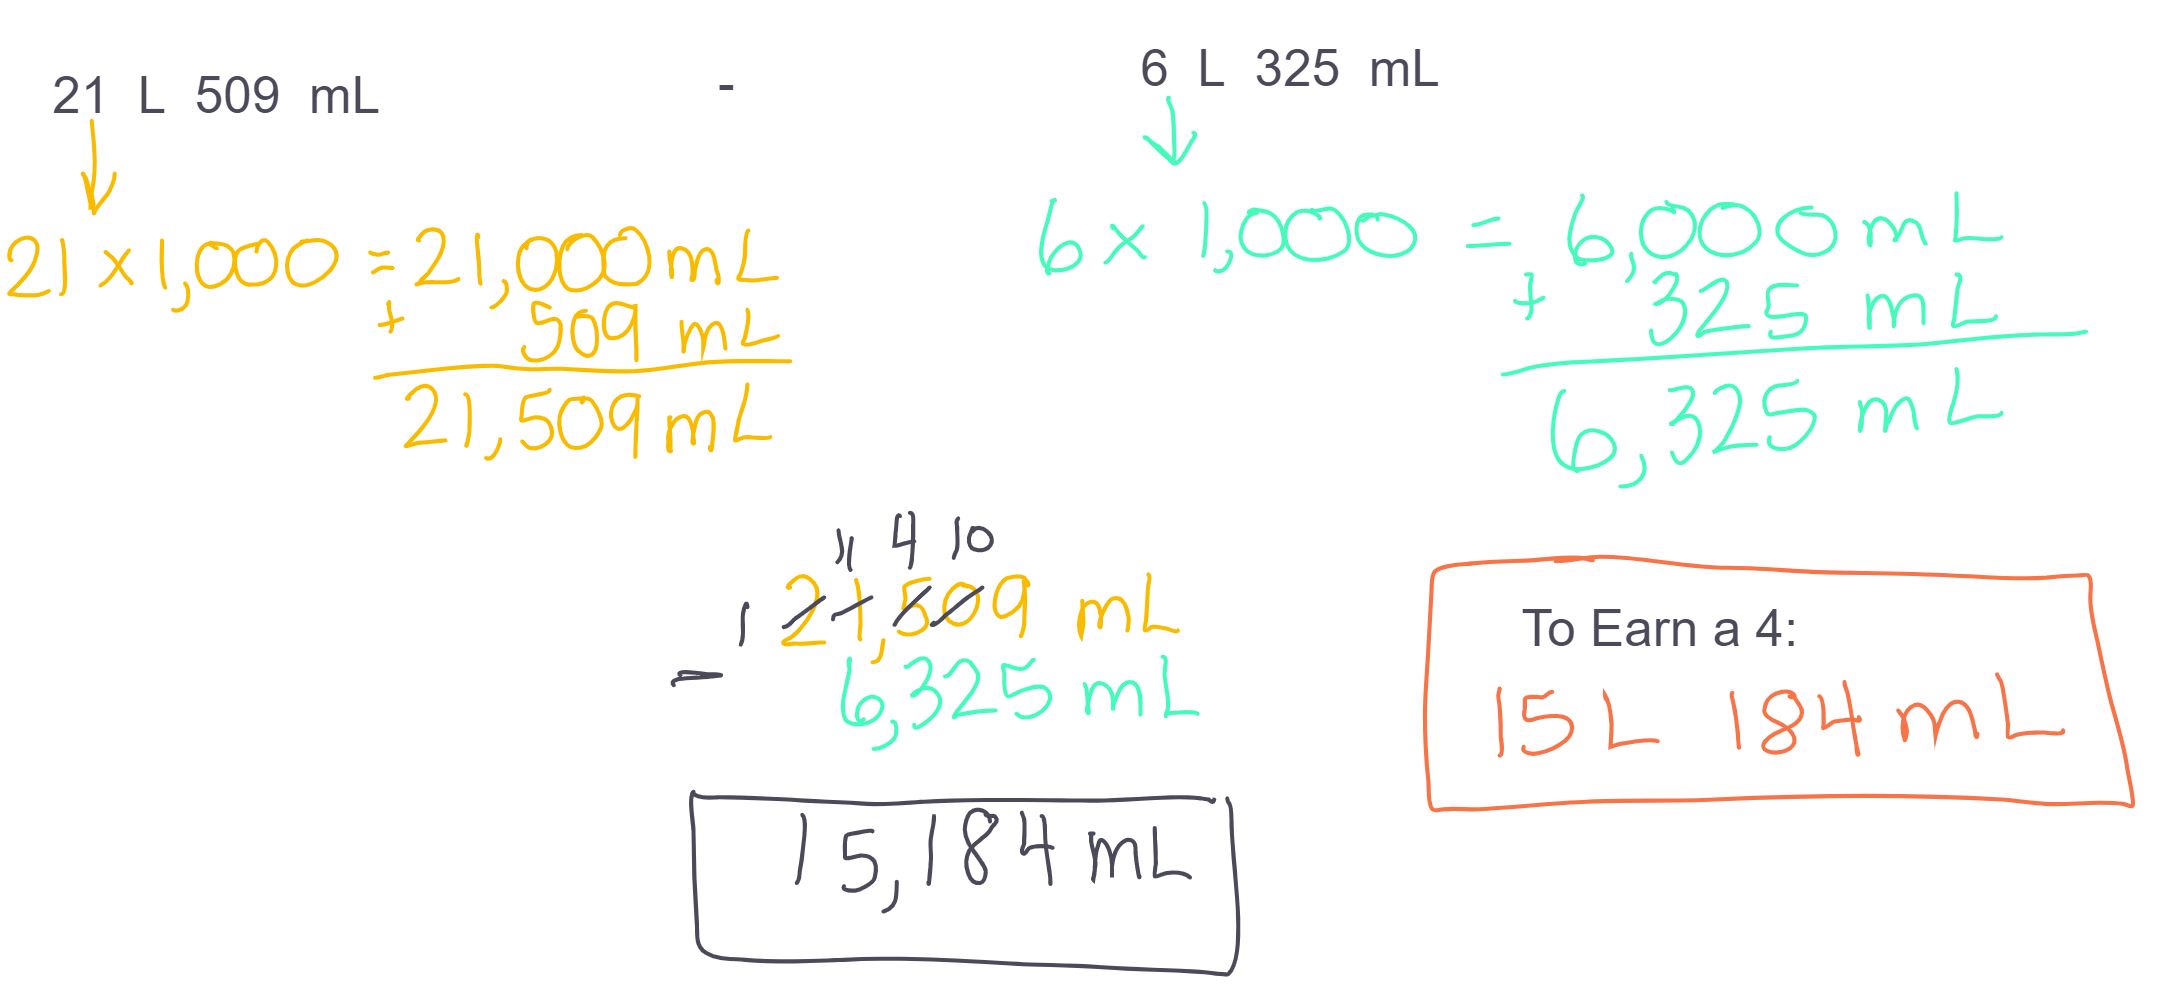 21 L 509 mL - 6 L 325 mL
21 x 1,000 = 21,000 mL
+ 509 mL
21,509 mL
6 x 1,000 = 6,000 mL
+ 325 mL
6,325 mL
11 4 10
1 21,509 mL
- 6,325 mL
15,184 mL
To Earn a 4:
15 L 184 mL